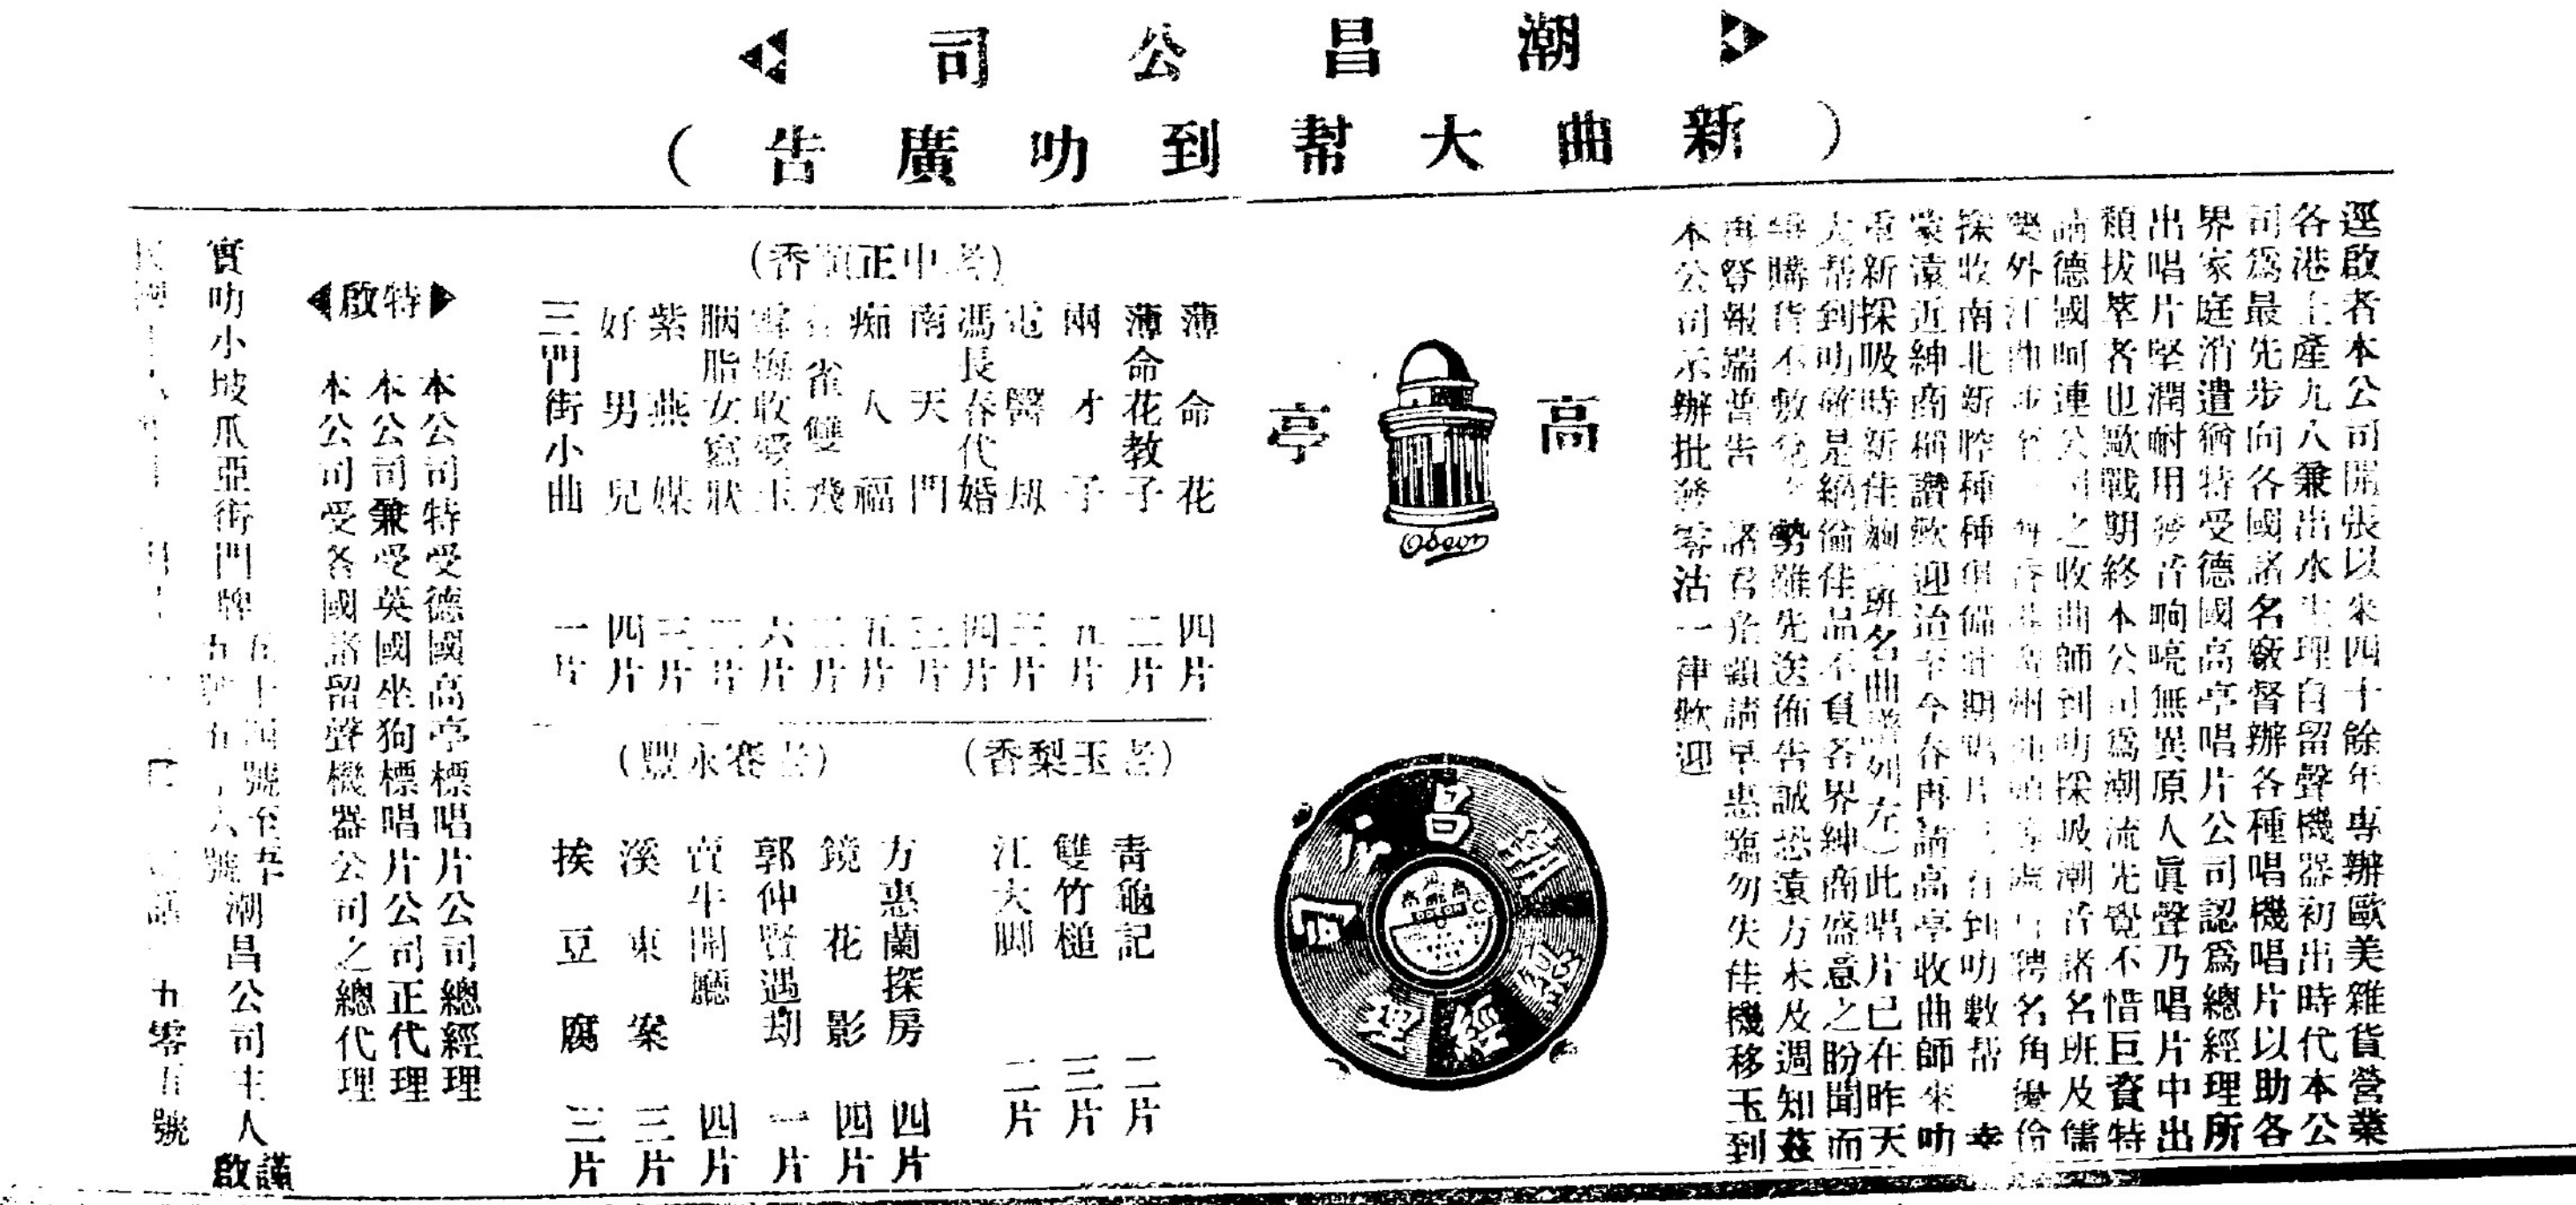 潮昌公司
(新曲大幫到叻廣告)
逕啟者本公司開張以來四十餘年專辦歐美雜貨營業
各港土產九八兼出水生理自留聲機器初出時代本公
司爲最先步向各國諸名廠督辦各種唱機唱片以助各
界家庭消遣猶特受德國高亭唱片公司認爲總經理所
出唱片堅潤耐用發音响喨無異原人眞聲乃唱片中出
類拔萃者也歐戰期終本公司爲潮流先覺不惜巨資特
請德國呵連公司之收曲師到叻採吸潮音諸名班及儒
樂外江曲聘名角優伶
採收南北新腔種種俱備計期唱片已有到叻數幇 幸
蒙遠近紳商稱讚歡迎治至今春再請高亭收曲師來叻
重新採吸時新佳齣(班名曲譜列左)此唱片已在昨天
大幇到叻確是絕倫佳品不負各界紳商盛意之盼聞而
購貨不敷兌之勢雖先送佈告誠恐遠方未及週知茲
再登報端普告 諸君光顧請早惠臨勿失佳機移玉到
本公司示辦批發零沽一律歡迎
高亭
Odeon
潮昌公司
總經理
(老中正順香)
薄命花 四片
薄命花教子 二片
兩才子 五片
電醫刼 三片
馮長春代婚 四片
南天門 三片
痴人福 五片
孔雀雙飛 二片
雪海收愛玉 六片
胭脂女寫狀 二片
紫燕媒 三片
好男兒 四片
三門街小曲 一片
(老玉梨香)
青龜記 二片
雙竹槌 三片
江大脚 二片
(老賽永豐)
方惠蘭探房 四片
鏡花影 四片
郭仲賢遇刼 一片
賣牛開廳 四片
溪東案 三片
挨豆腐 三片
特啟
本公司特受德國高亭標唱片公司總經理
本公司兼受英國坐狗標唱片公司正代理
本公司受各國諸留聲機器公司之總代理
實叻小坡爪亞街門牌五十四號至五十五號五十六號潮昌公司主人謹啟
九零五號